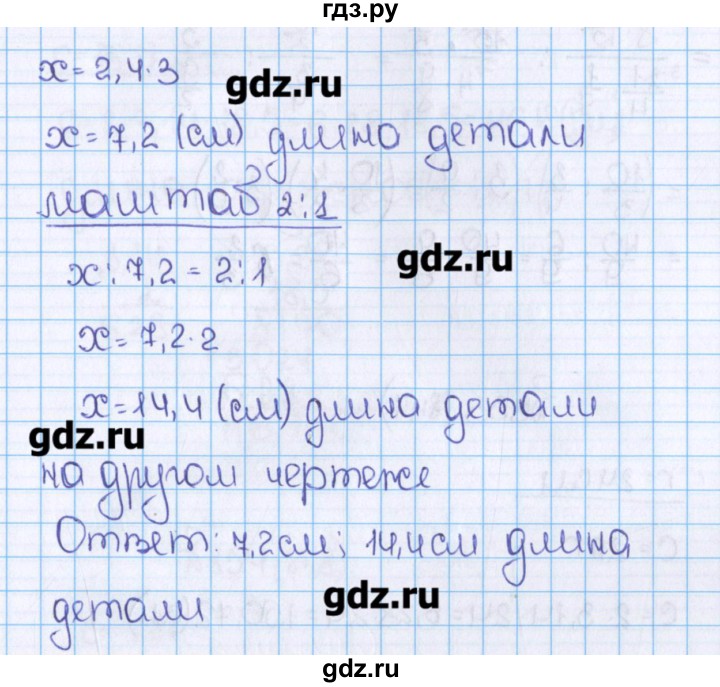 гдз.ру
x = 2,4·3
gdz.ru
x = 7,2 (см) длина детали
маштаб 2:1
gdz.ru
x : 7,2 = 2:1
x = 7,2·2
x = 14,4 (см) длина детали
gdz.ru
на другом чертеже
Ответ: 7,2см; 14,4см длина
gdz.ru
детали
gdz.ru